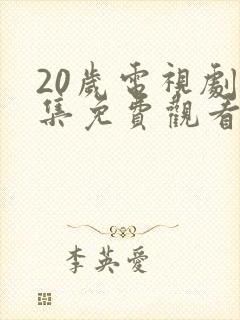 20歲電視劇
集免費觀看
李英愛